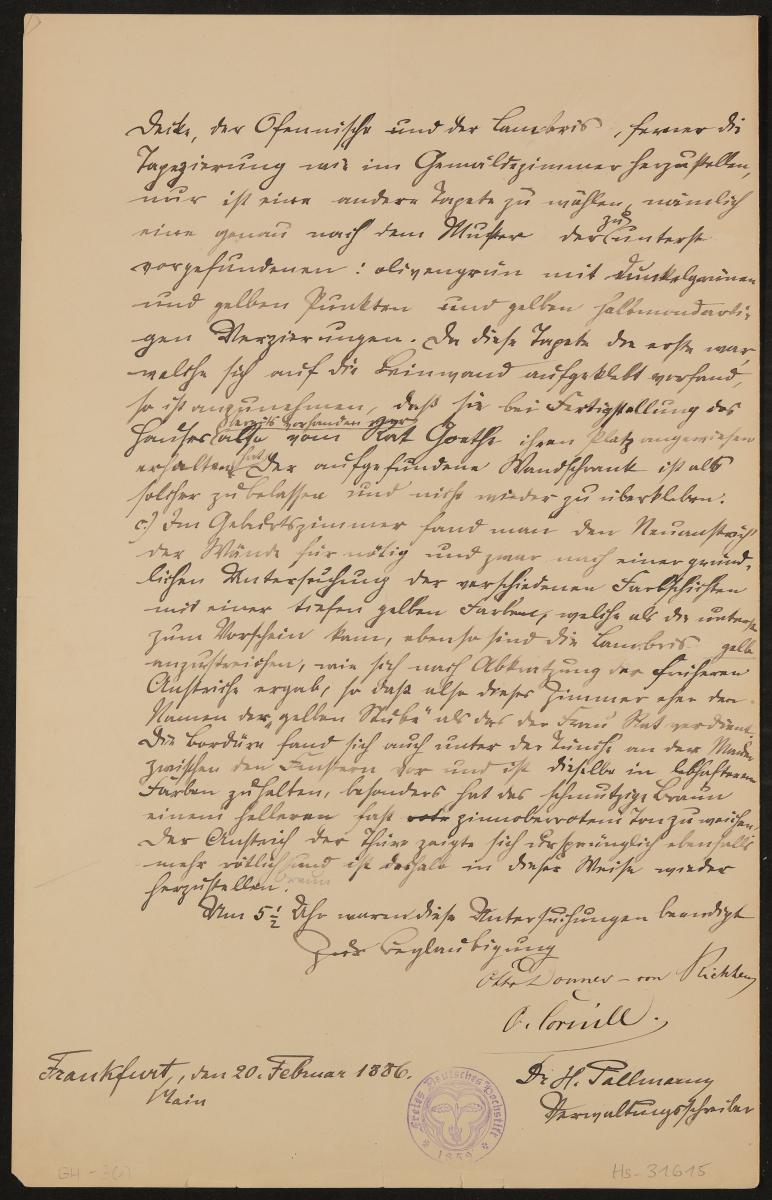 Decke, der Ofennische und der Lambris, ferner die
Tapezierung wie im Gemäldezimmer herzustellen,
nur ist eine andere Tapete zu wählen, nämlich
eine genau nach dem Muster der zu
unterst
vorgefundenen: olivengrün mit dunkelgrünen
und gelben Punkten und gelben halbmondarti-
gen Verzierungen. Da diese Tapete die erste war,
welche sich auf die Leinwand aufgeklebt vorfand,
so ist anzunehmen, daß sie bei Fertigstellung des
bereits vorhanden war
Hauses also vom Rat Goethe ihren Platz angewiesen
erhalten hat. Der aufgefundene Wandschrank ist als
solcher zu belassen und nicht wieder zu überkleben.
c.) Im Geburtszimmer fand man den Neuanstrich
der Wände für nötig und zwar nach einer gründ-
lichen Untersuchung der verschiedenen Farbschichten
mit einer tiefen gelben Farbe, welche als die unterste
zum Vorschein kam, ebenso sind die Lambris gelb
anzustreichen, wie sich nach Abkratzung der früheren
Anstriche ergab, so daß also dieses Zimmer eher den
Namen der „gelben Stube" als das der Frau Rat verdient.
Die Bordüre fand sich auch unter der Tünche an der Mauer
zwischen den Fenstern vor und ist dieselbe in lebhafteren
Farben zu halten, besonders hat das schmutzige Braun
einem helleren fast rote zinnoberroten Ton zu weichen.
Der Anstrich der Thüre zeigte sich ursprünglich ebenfalls
mehr rötlich und ist deshalb in dieser Weise wieder
braun
herzustellen.
Um 5 1/2 Uhr waren diese Untersuchungen beendigt
Zur Beglaubigung
Otto Donner-von Richter
O. Cornill.
Frankfurt, den 20. Februar 1886.
Main
Dr H. Pallmann
Verwaltungsschreiber
Freies Deutsches Hochstift
1859
GH-3(7)
Hs-31615